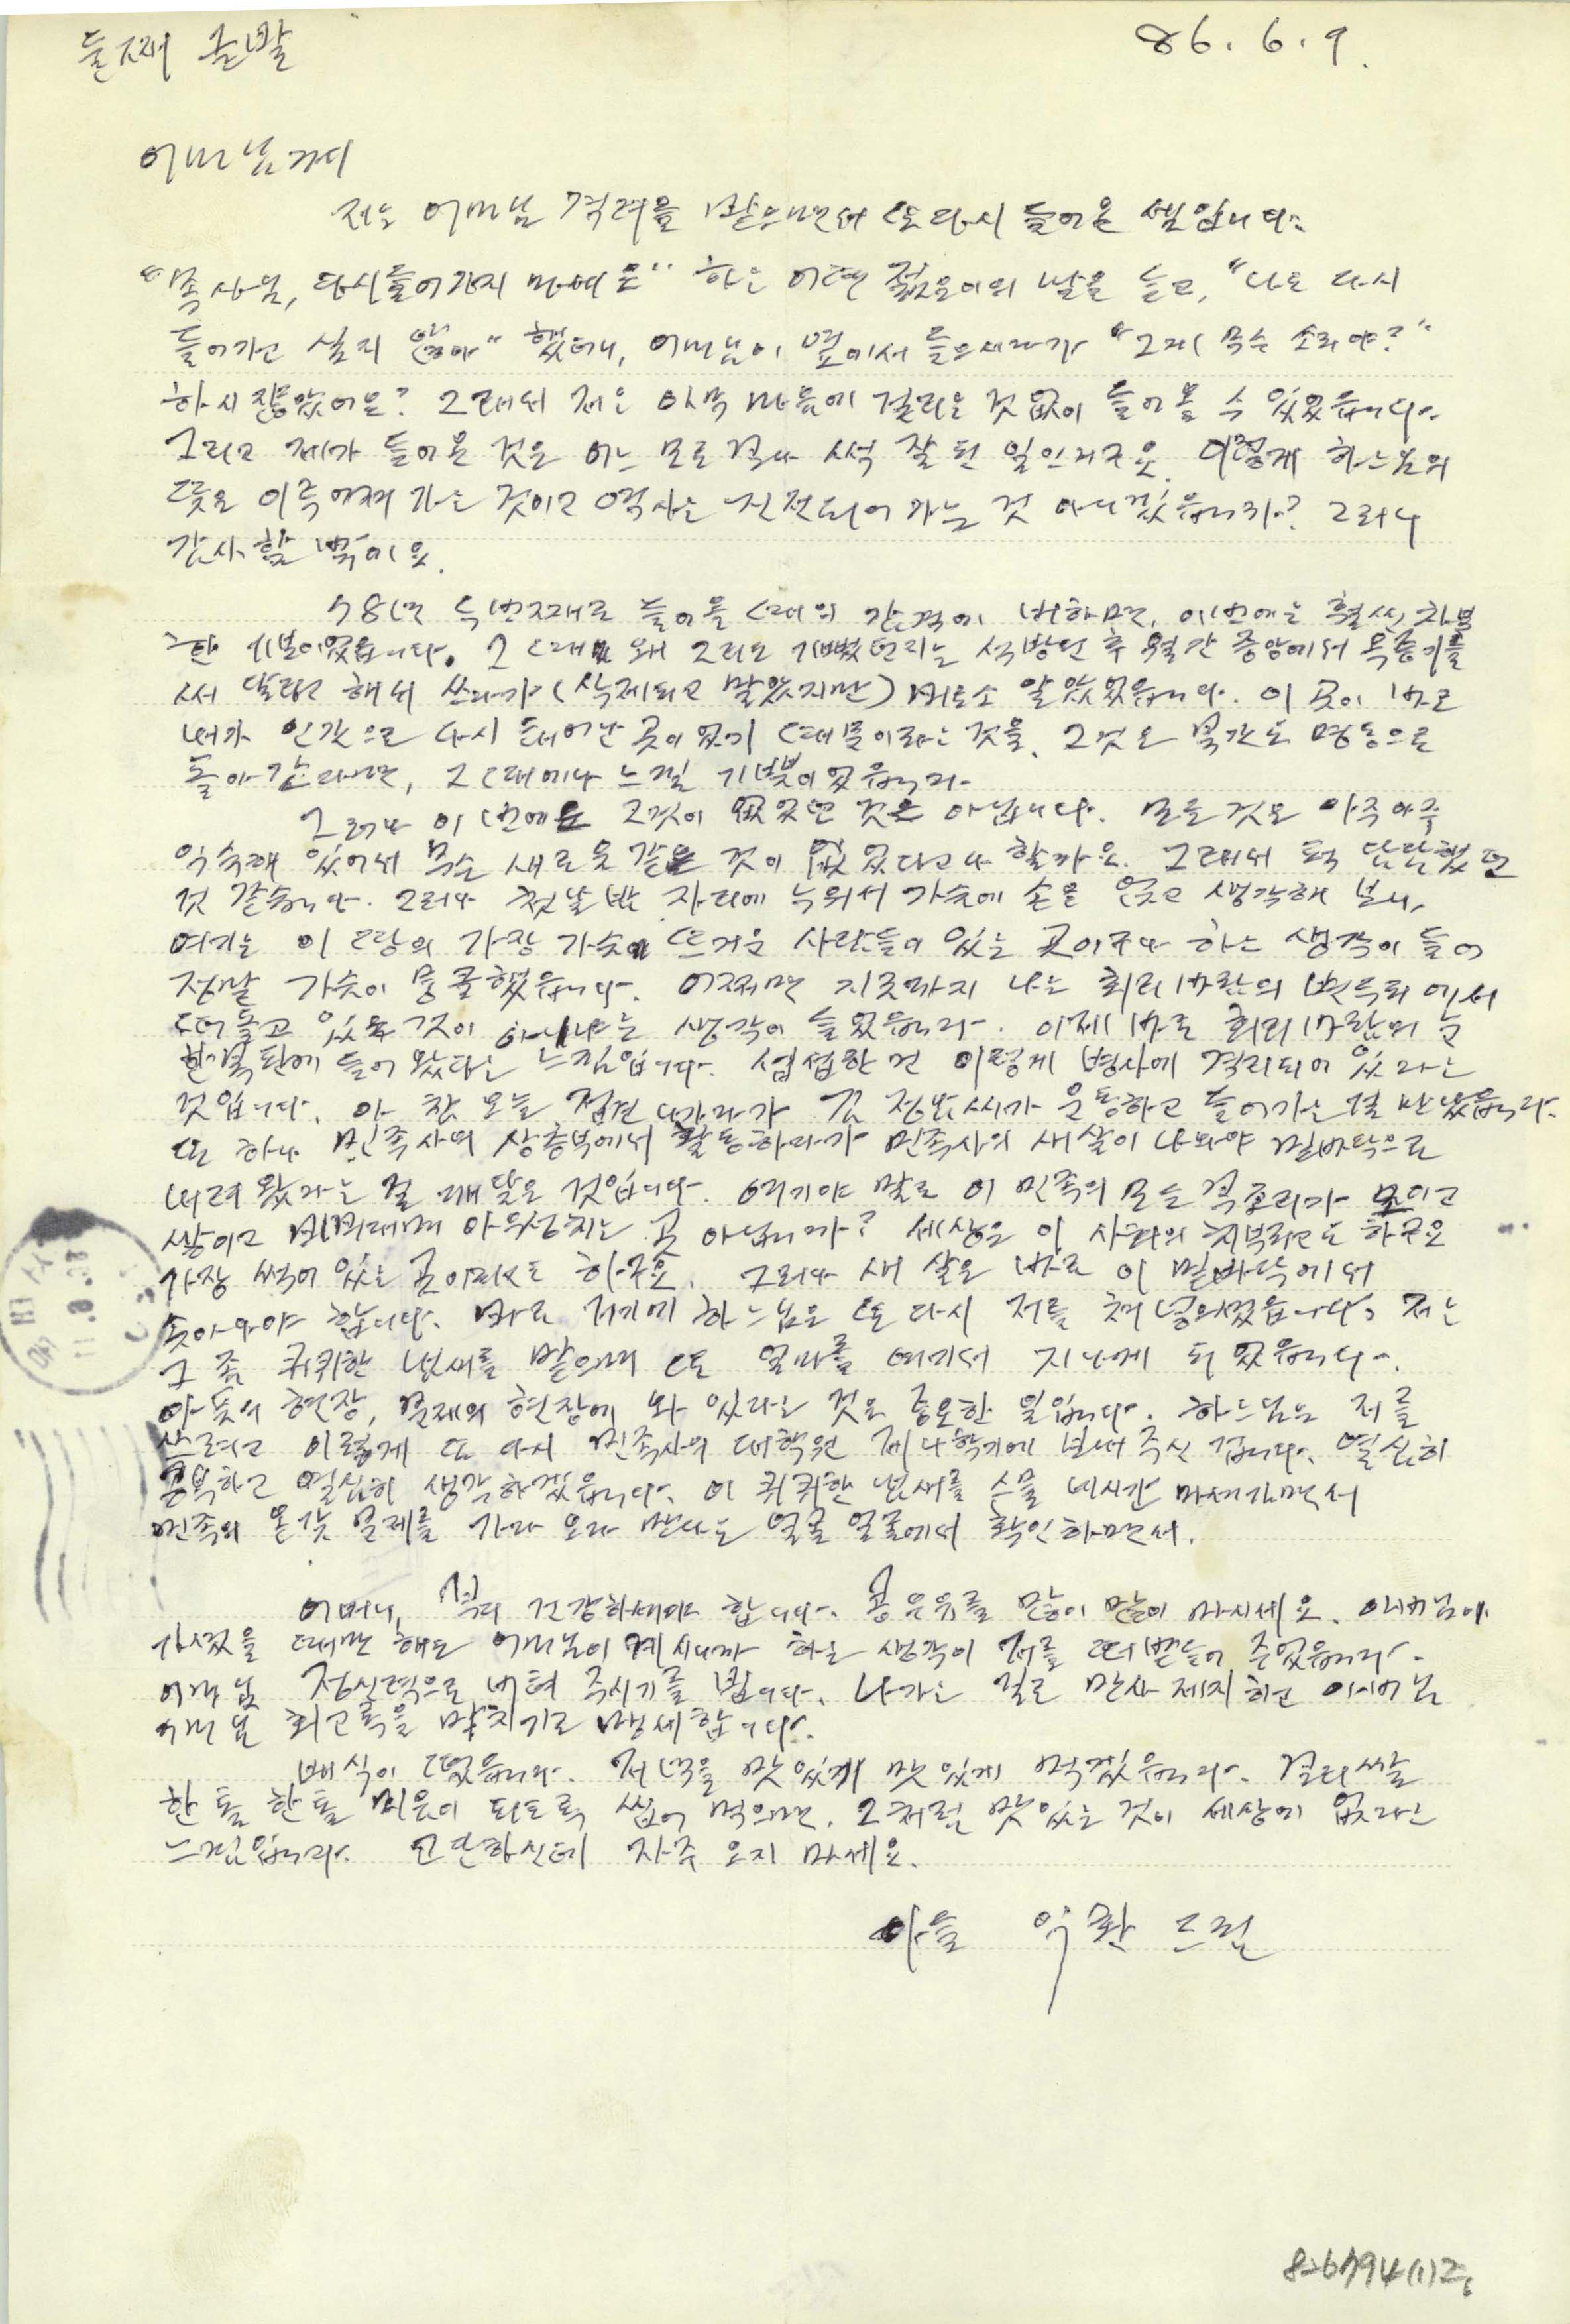 둘째 글발
86. 6. 9.
어머님께
저는 어머님 격려를 받으면서 또 다시 들어온 셈입니다.
"목사님, 다시 들어가지 마세요" 하는 어떤 젊은이의 말을 듣고, "나도 다시
들어가고 싶지 않아" 했더니, 어머님이 옆에서 들으시다가 "그게 무슨 소리야?"
하시잖았어요? 그래서 저는 아무 마음에 걸리는 것 없이 들어올 수 있었읍니다.
그리고 제가 들어온 것은 어느 모로 보나 썩 잘 된 일인거구요. 이렇게 하느님의
뜻은 이루어져 가는 것이고 역사는 진전되어 가는 것 아니겠읍니까? 그러니
감사할 밖에요.
78년 두번째로 들어올 때의 감격에 비하면, 이번에는 훨씬 차분
한 기분이었읍니다. 그 때 왜 그리도 기뻤던지는 석방된 후 월간 중앙에서 옥중기를
써 달라고 해서 쓰다가 (삭제되고 말았지만) 비로소 알았었읍니다. 이 곳이 바로
내가 인간으로 다시 태어난 곳이었기 때문이라는 것을. 그것은 북간도 명동으로
돌아간다면, 그 때에나 느낄 기쁨이었읍니다.
그러나 이번에는 그것이 없었던 것은 아닙니다. 모든 것은 아주 아주
익숙해 있어서 무슨 새로울 같은 것이 없었다고나 할까요. 그래서 퍽 담담했던
것 같습니다. 그러나 첫날 밤 자리에 누워서 가슴에 손을 얹고 생각해 보니,
여기는 이 땅의 가장 가슴이 뜨거운 사람들이 있는 곳이구나 하는 생각이 들어
정말 가슴이 뭉클했읍니다. 어쩌면 지금까지 나는 회리바람의 변두리에서
떠돌고 있는 것이 아니냐는 생각이 들었읍니다. 이제 바로 회리바람의 눈
한복판에 들어왔다는 느낌입니다. 섭섭한 건 이렇게 병사에 격리되어 있다는
것입니다. 아 참 오늘 접견 나가다가 김 씨가 운동하고 들어가는 걸 만났읍니다.
또 하나 민족사의 상층부에서 활동하다가 민족사의 새살이 나와야 밑바닥으로
내려왔다는 걸 깨달은 것입니다. 여기야 말로 이 민족의 모든 목소리가 모이고
쌓이고 비벼대며 아우성치는 곳 아닙니까? 세상은 이 사회의 치부라고도 하구요
가장 썩어 있는 곳이라고도 하구요. 그러나 새 살은 바로 이 밑바닥에서
솟아나야 합니다. 바로 거기에 하느님은 또 다시 저를 쳐 넣으셨읍니다. 저는
그 좀 퀴퀴한 냄새를 맡으며 또 얼마를 여기서 지나게 되었읍니다.
아픔의 현장, 문제의 현장에 와 있다는 것은 중요한 일입니다. 하느님은 저를
쓰려고 이렇게 또 다시 민족사의 대학원 제 학기에 보내 주신 겁니다. 열심히
공부하고 열심히 생각하겠읍니다. 이 퀴퀴한 냄새를 스물 네시간 마셔가면서
민족의 온갖 문제를 가다 오다 만나는 얼굴 얼굴에서 확인하면서.
어머니, 부디 건강하셔야 합니다. 콩우유를 많이 많이 마시세요. 아버님이
가셨을 때만 해도 어머님이 계시니까 하는 생각이 저를 떠받들어 주었읍니다.
어머님 정신력으로 버텨 주시기를 빕니다. 나가는 길로 만사 제치하고 아버님
어머님 회고록을 마치기로 맹세합니다.
배식이 떴읍니다. 저녁을 맛있게 맛있게 먹겠읍니다. 보리쌀
한 톨 한 톨 미음이 되도록 씹어 먹으면, 그처럼 맛있는 것이 세상에 없다는
느낌입니다. 고단하신데 자주 오지 마세요.
아들 익환 드림
826794(1)2